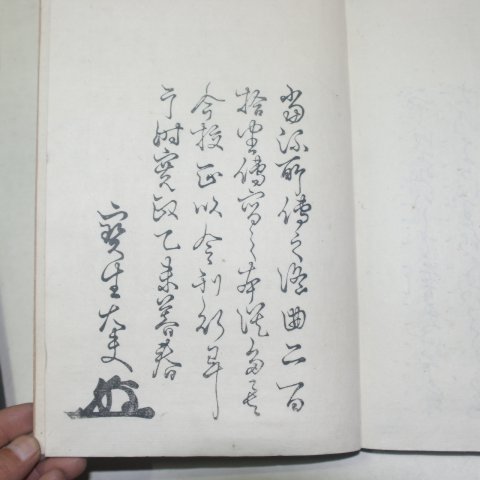 當流所傳之謡曲二百
拾番傳寫之本謬多矣
今校正以令刊行畢
于时寛政乙未暮春
寳生大夫